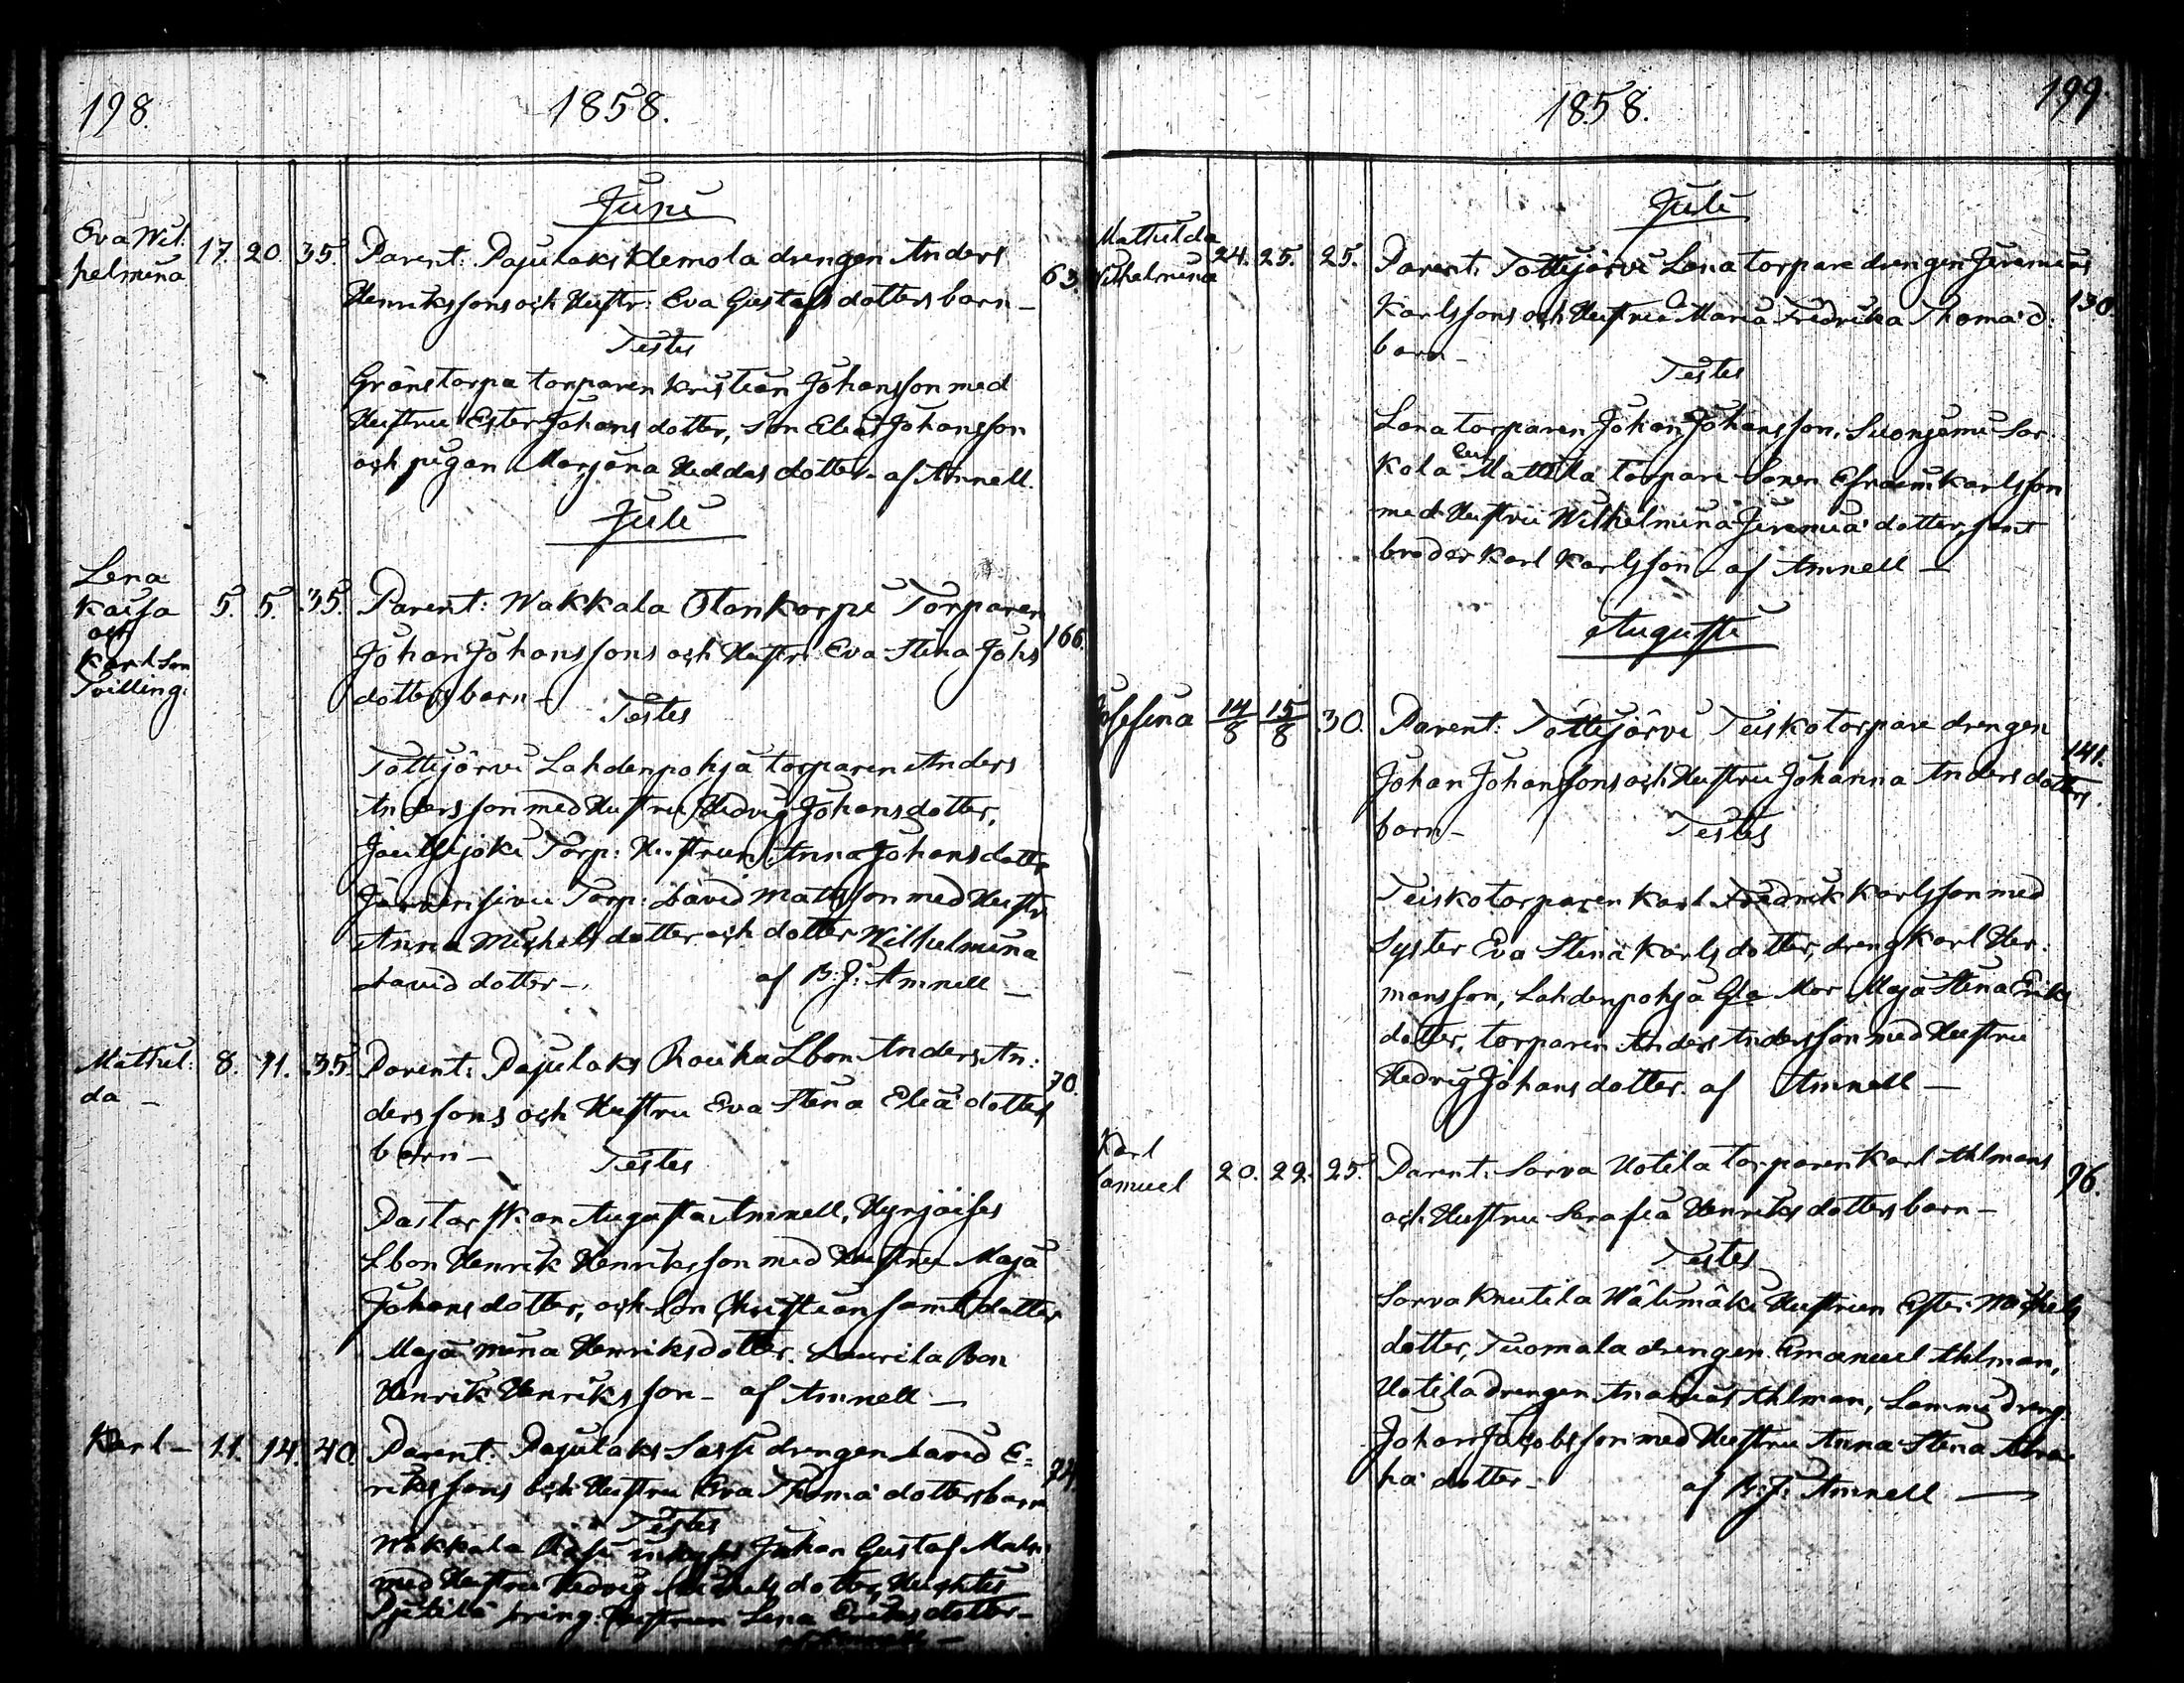 198.
1858.
Juni
Eva Wil:
helmina
17. 20. 35.
Parent: Pajulaks Klemola drengen Anders
Henrikssons och Hustr: Eva Gustafs dotters barn —
63.
Testes
Gränstorpa torparen Kristian Johansson med
Hustru Ester Johans dotter, Son Elias Johansson
och pigan Marjana Heddas dotter - af Amnell.
Juli
Lena
Kaisa
och
Karl Son
Tvilling:
5. 5. 35.
Parent: Wakkala Torparen
Johan Johanssons och Hustr: Eva Stina Johs
dotters barn —
166.
Testes
Tottijärvi Lahdenpohja torparen Anders
Andersson med Hustru Hedvig Johansdotter,
Joutsijoki Torp: Hustrun Anna Johansdotter
Järvensivu Torp: David Mattsson med Hustr:
Anna Michels dotter och dotter Wilhelmina
David dotter —. af B: J: Amnell —
Mathil:
da —
8. 11. 35.
Parent: Pajulaks Rouha Lbon Anders An:
derssons och Hustru Eva Stina Eliä dotters
barn —
70.
Testes
Pastorskan Augusta Amnell, Hynjöises
Lbon Henrik Henriksson med Hustru Maja
Johans dotter, och Son Christian samt dotter
Maja Mina Henriksdotter. Laurila Bon
Henrik Henriksson — af Amnell —
Karl —
11. 14. 40.
Parent: Pajulaks Sassi drengen David E=
rikssons och Hustru Eva Thoma dotters barn
74
Testes
Wakkala Johan Gustaf Malm
med Hustru Hedvig Michels dotter,
dreng: Hustrun Lena Eriks dotter —
199.
1858.
Juli
Mathilda
Wilhelmina
24. 25. 25.
Parent: Tottijärvi Lana torpare drengen Jeremias
Karlssons och Hustru Maria Fredrika Thoma d:
barn —
130
Testes
Lana torparen Johan Johansson, Suonjemi Sar
kola Mattila torpare Sonen Efraim Karlsson
med Hustru Wilhelmina Jeremia dotter, samt
broder Karl Karlsson — af Amnell —
Augusti
Josefina
14/8 15/8 30.
Parent: Tottijärvi Teisko torpare drengen
Johan Johanssons och Hustru Johanna Anders dotters
barn —
141.
Testes
Teisko torparen Karl Fredrik Karlsson med
Syster Eva Stina Karlsdotter, dreng Karl Her:
mansson, Lahdenpohja Gla Mor Maja Stina Eriks
dotter, torparen Anders Andersson med Hustru
Hedvig Johans dotter. af Amnell —
Karl
Samuel
20. 22. 25.
Parent: Sarva Uotila torparen Karl Ahlmans
och Hustru Serafia Henriks dotters barn —
96.
Testes
Sarva Knutila Wälimäki Hustrun Ester Michels
dotter, Tuomala drengen Emanuel Ahlman,
Uotila drengen Ananias Ahlman, Lammi dreng:
Johan Jakobsson med Hustru Anna Stina Abra
ha dotter — af B: J: Amnell —